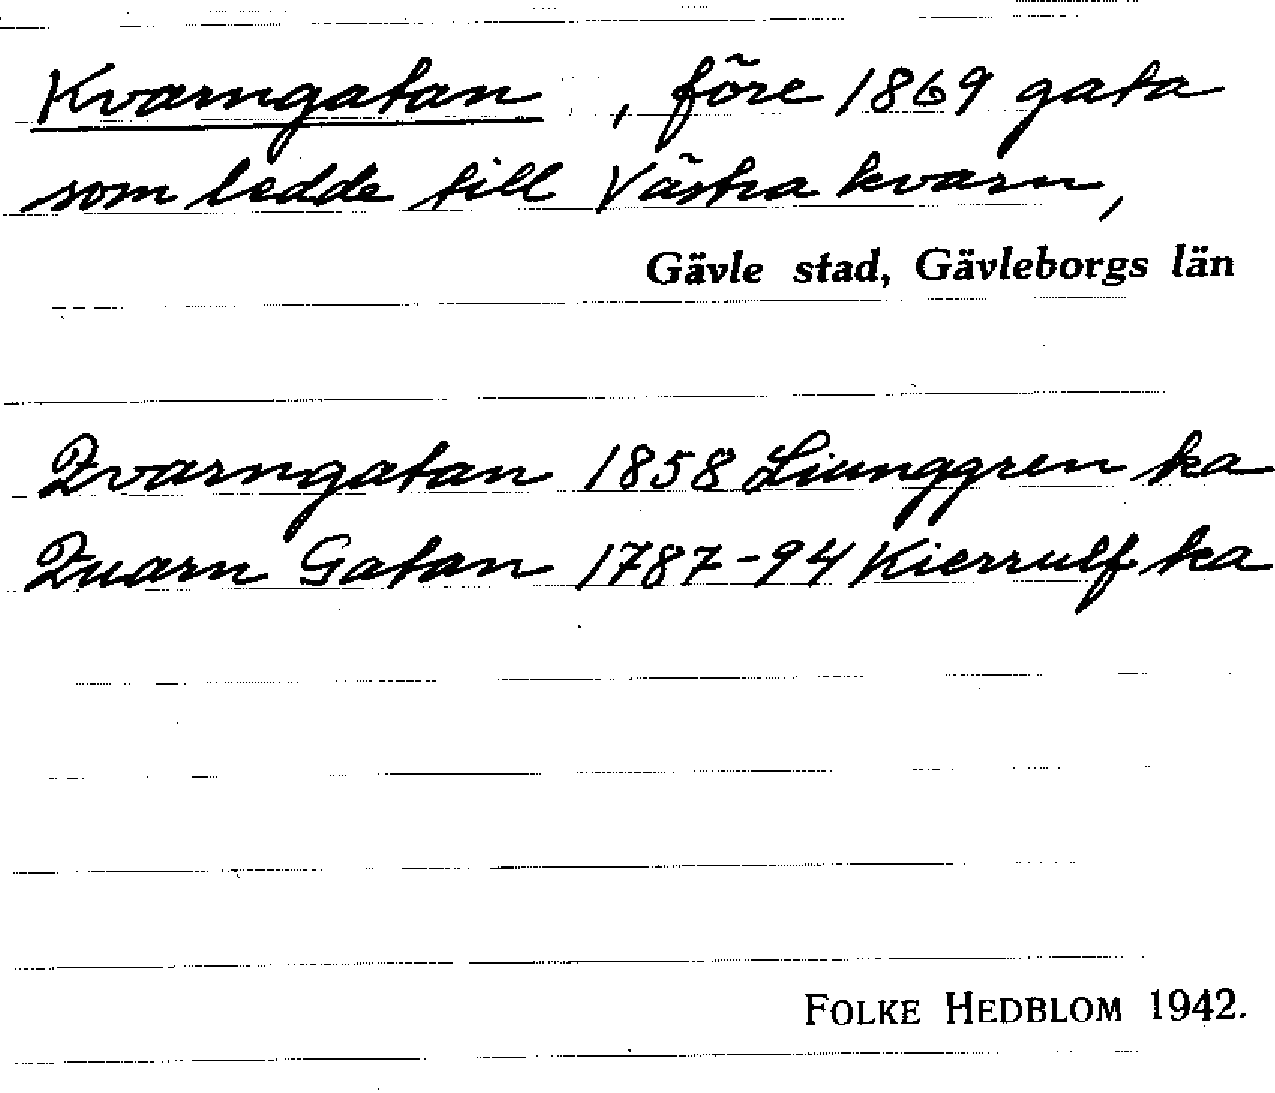 Kvarngatan , före 1869 gata
som ledde till Västra kvarn,
Gävle stad, Gävleborgs län
Qvarngatan 1858 Liunggren ka
Quarn Gatan 1787-94 Kierrulf ka
FOLKE HEDBLOM 1942.